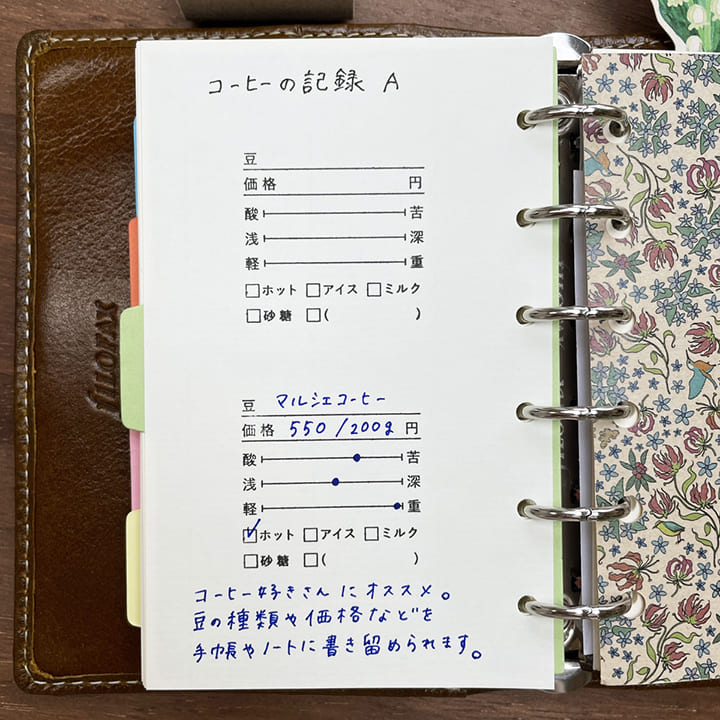 コーヒーの記録 A
豆
価格 円
酸 苦
浅 深
軽 重
ホット アイス ミルク
砂糖 ( )
豆 マルシェコーヒー
価格 550/200g 円
酸 苦
浅 深
軽 重
ホット アイス ミルク
砂糖 ( )
コーヒー好きさんにオススメ。
豆の種類や価格などを
手帳やノートに書き留められます。
filofax